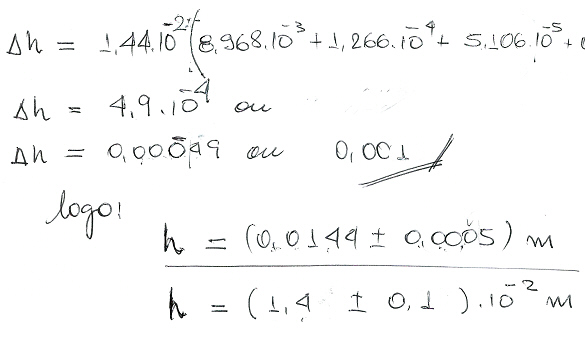 Δh = 1,44.10⁻² (8,968.10⁻³ + 1,266.10⁻⁴ + 5,106.10⁻⁵ +
Δh = 4,9.10⁻⁴ ou
Δh = 0,00049 ou 0,001
logo!
h = (0,0144 ± 0,0005) m
h = (1,4 ± 0,1).10⁻² m